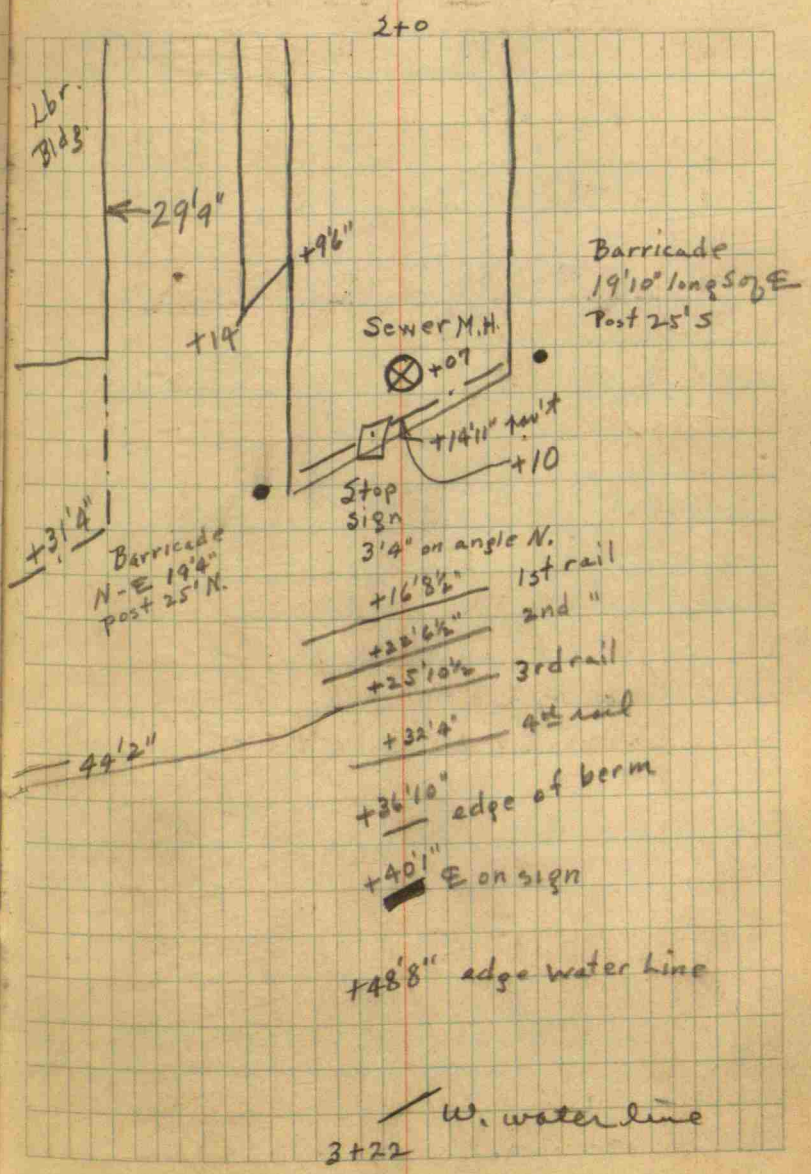 2+0
Lbr.
Bldg.
29'9"
+9'6"
+14
Barricade
19'10" long S of ℄
Post 25' S
Sewer M.H.
+07
+14'11" pav't
+10
Stop
sign
3'4" on angle N.
+31'4"
Barricade
N-℄ 19'4"
post 25' N.
+16'8½" 1st rail
+22'6½" 2nd "
+25'10½ 3rd rail
+32'4" 4th rail
44'2"
+36'10" edge of berm
+40'1" ℄ on sign
+48'8" edge water line
W. water line
3+22